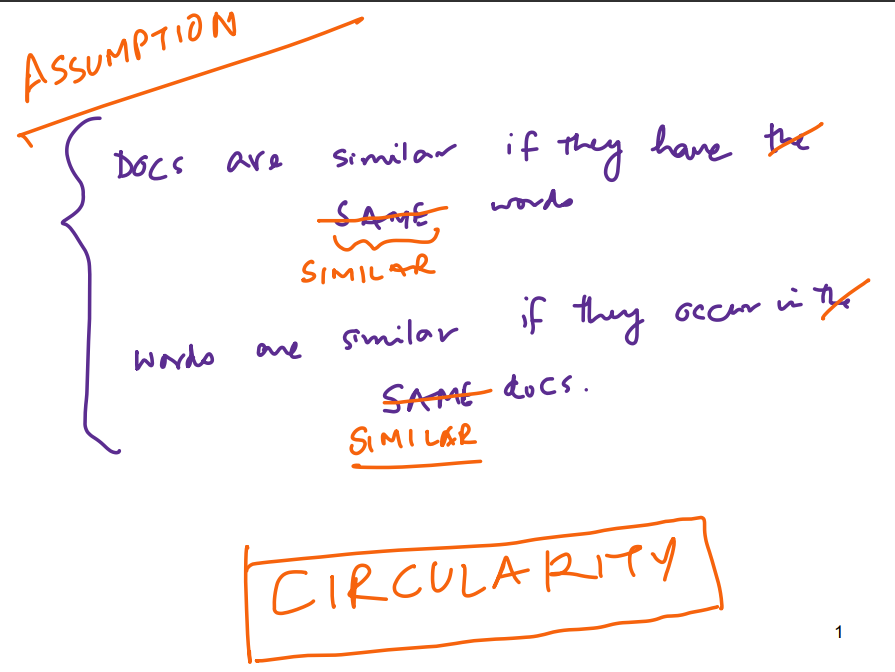 ASSUMPTION
DOCS are similar if they have the
SAME words
SIMILAR
words are similar if they occur in the
SAME docs.
SIMILAR
CIRCULARITY
1